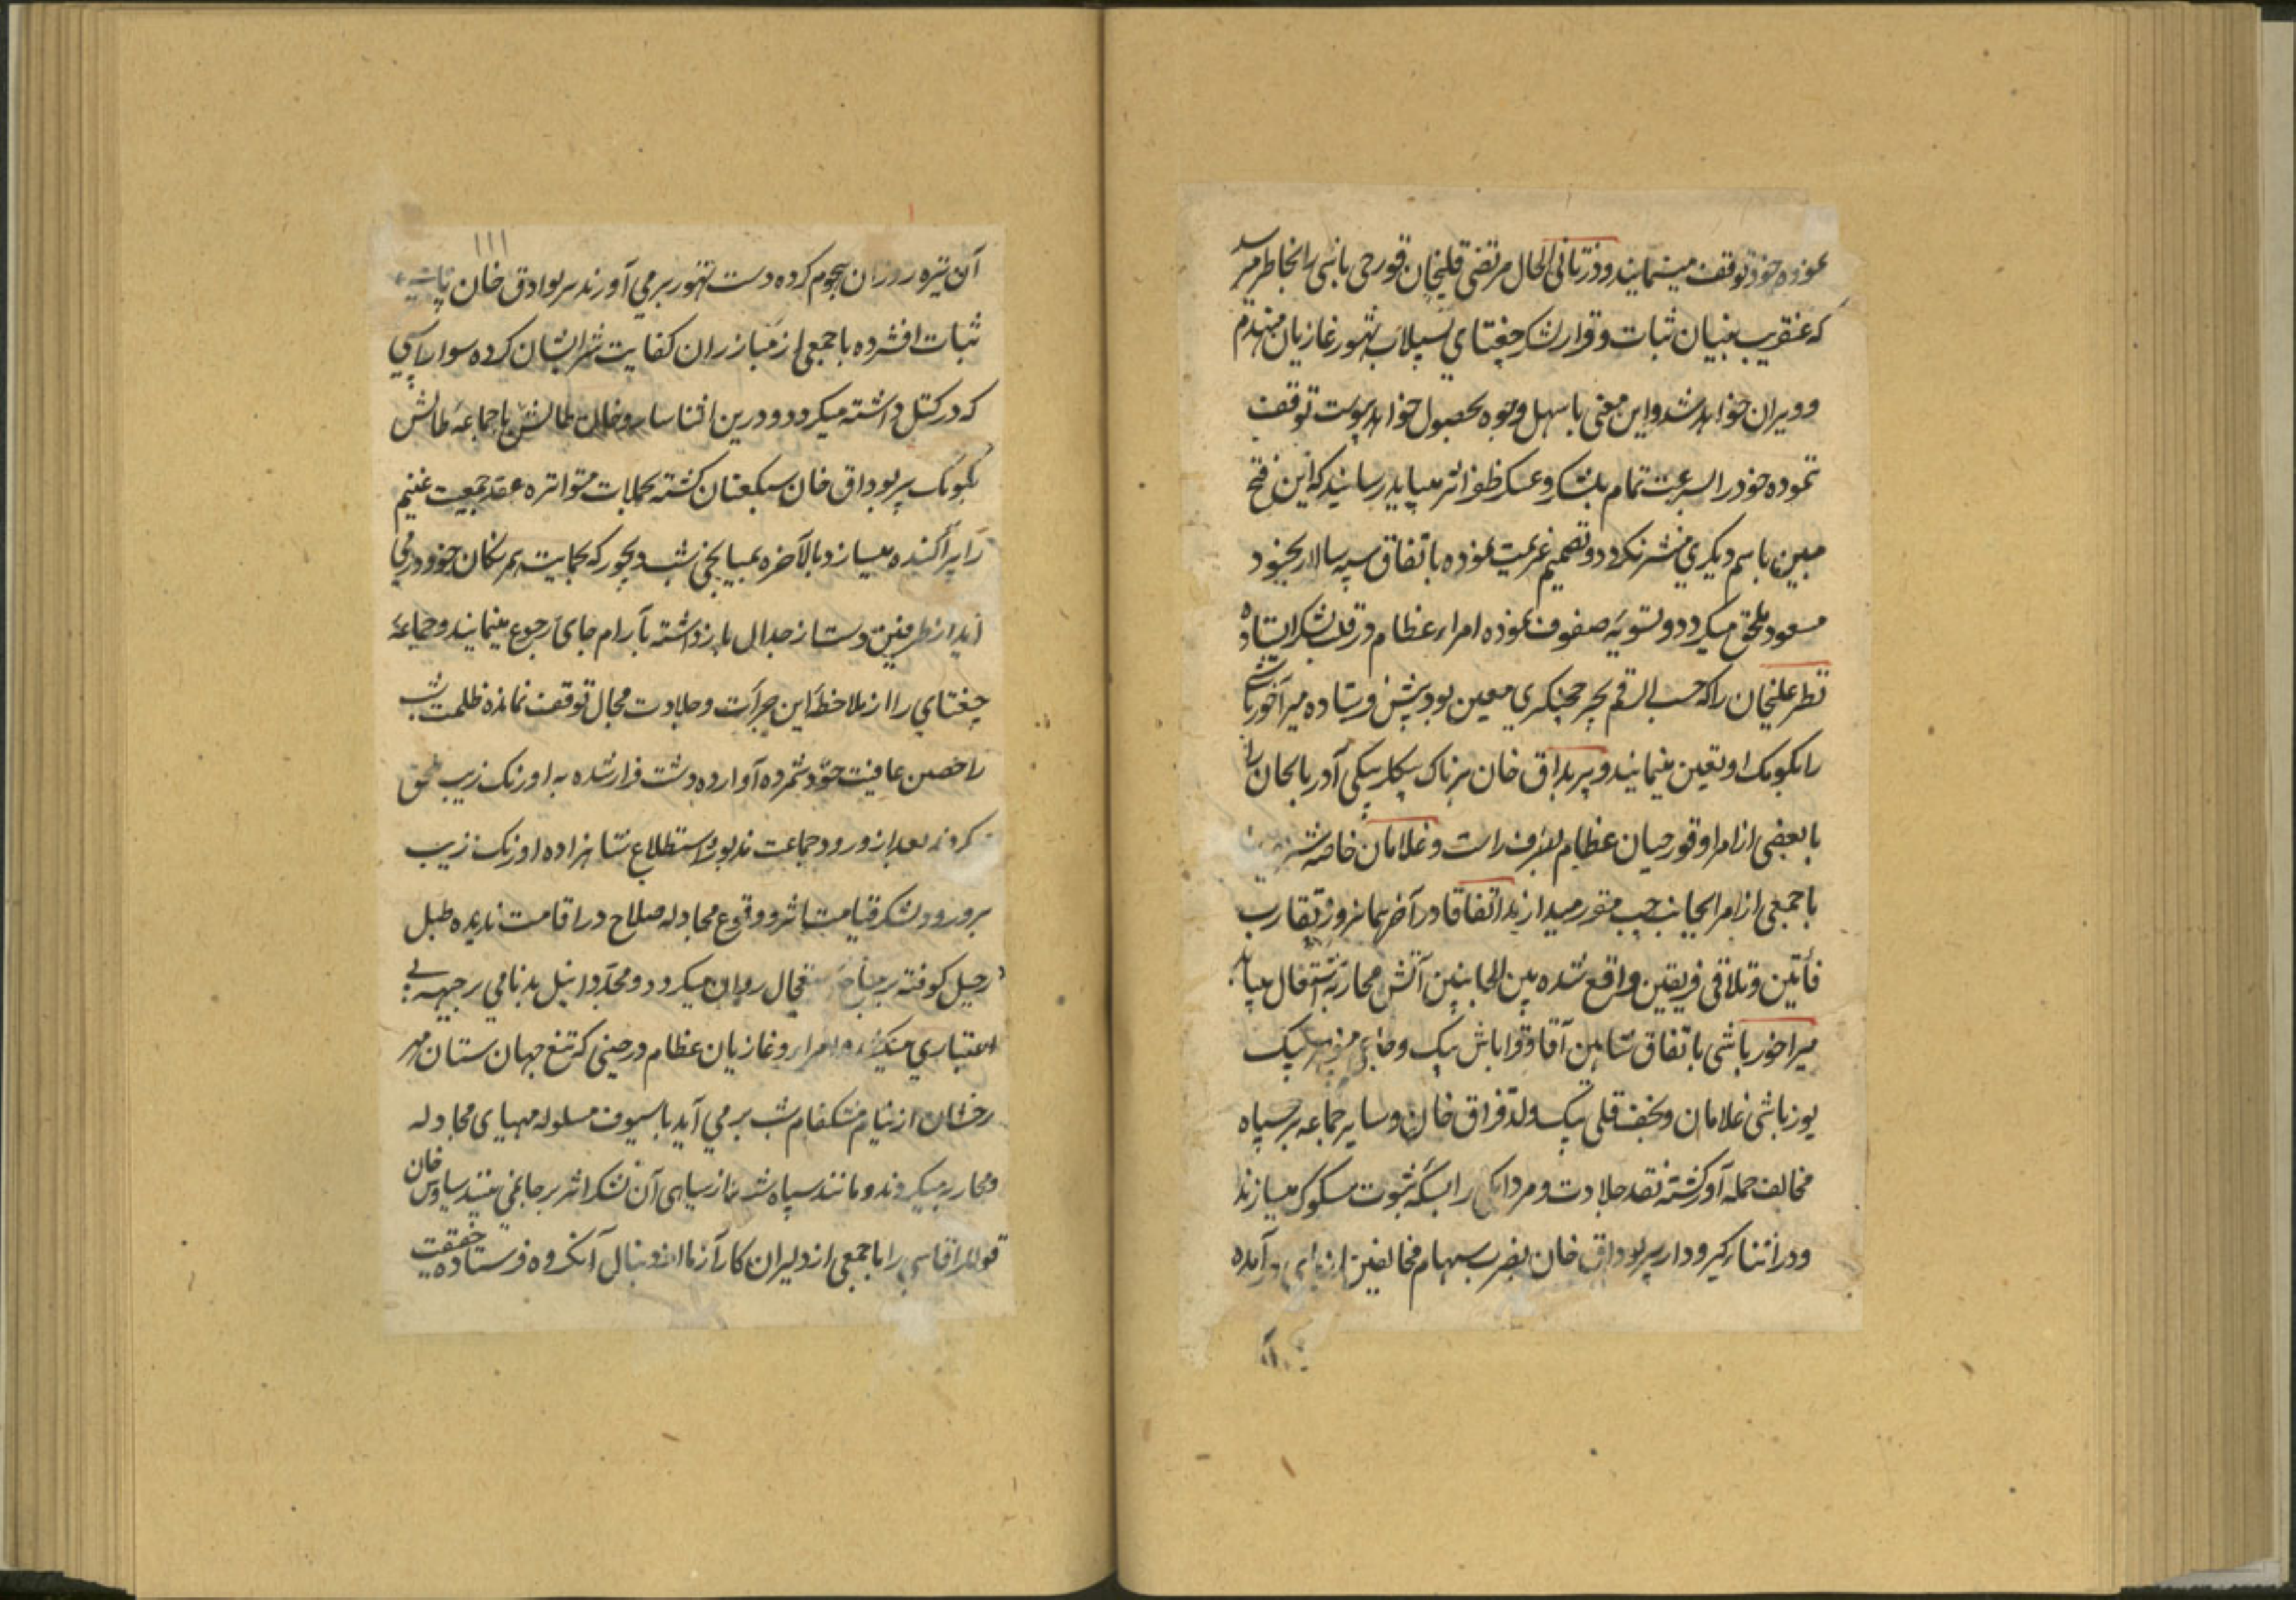 نموده خود توقف مینمایند و در ثانی الحال مرتضی قلیخان قورچی باشی را بخاطر میرسد
که عنقریب بنیان ثبات و قرار لشکر چغتای بسیلاب تهور غازیان منهدم
و ویران خواهد شد و این معنی باسهل وجوه بحصول خواهد پیوست توقف
ننموده خود را بسرعت تمام بلشکر و عسکر ظفر اثر میباید رسانید که این فتح
مبین باسم دیگری منتشر نکردد و تصمیم عزیمت نموده باتفاق سپه سالار بجنود
مسعود ملحق میکردد و تسویه صفوف نموده امراء عظام در قلب لشکر ایستاده
نظر علیخان را که حسب الرقم بچرخچیکری معین بود پیش فرستاده میرآخور باشی
را بکومک او تعین مینمایند و پیر بداق خان پرناک بیکلربیکی آذربایجان را
با بعضی از امرا و قورچیان عظام بطرف راست و غلامان خاصه شریفه
با جمعی از امرا بجانب چپ مقرر میدارند اتفاقا در آخر همانروز تقارب
فأتین و تلاقی فریقین واقع شده بین الجانبین آتش محاربه اشتعال مییابد
میراخور باشی باتفاق شاهین آقا و قواباش بیک و حاجی منوچهر بیک
یوزباشی غلامان و نجف قلی بیک ولد قزاق خان و سایر جماعه بر سپاه
مخالف حمله آور کشته نقد جلادت و مردانکی را بسکه ثبوت مسکوک میسازند
و در اثناء کیرودار پیر بوداق خان بضرب سهام مخالفین از پای درآمده
آن
١١١
آن تیره روزان هجوم کرده دست تهور برمی آورند پیر بوداق خان پای
ثبات افشرده با جمعی از مبارزان کفایت شر ایشان کرده سوار اسپی
که در کتل داشته میکردد و درین اثنا ساروخان طالش با جماعه طالش
بکومک پیر بوداق خان سبکعنان کشته بحملات متواتره عقد جمعیت غنیم
را پراکنده میسازد بالآخره عیسا بخی شب دیجور که بحمایت همرنکان خود درمی
آید از طرفین دست از جدال بازداشته بآرام جای رجوع مینمایند و جماعه
چغتای را از ملاحظه این جرأت و جلادت مجال توقف نمانده ظلمت شب
را حصن عافیت خود شمرده آواره دشت فرار شده به اورنک زیب ملحق
کردند بعد از ورود جماعت مذبور و استطلاع شاهزاده اورنک زیب
بر ورود لشکر قیامت اثر و وقوع مجادله صلاح در اقامت ندیده طبل
رحیل کوفته بر جناح استعجال روان میکردد و مجددا نیل بدنامی بر جبهه بی
اعتباری میکشد و امراء و غازیان عظام در حینی که تیغ جهان ستان مهر
رخشان از نیام مشکفام شب برمی آید با سیوف مسلوله مهیای مجادله
و محاربه میکردند و مانند سپاه شب نماز سیاهی آن لشکر اثر بر جا نمی بینند سیاوش خان
قوللر اقاسی را با جمعی از دلیران کارآزما از دنبال آنکروه فرستاده حقیقت